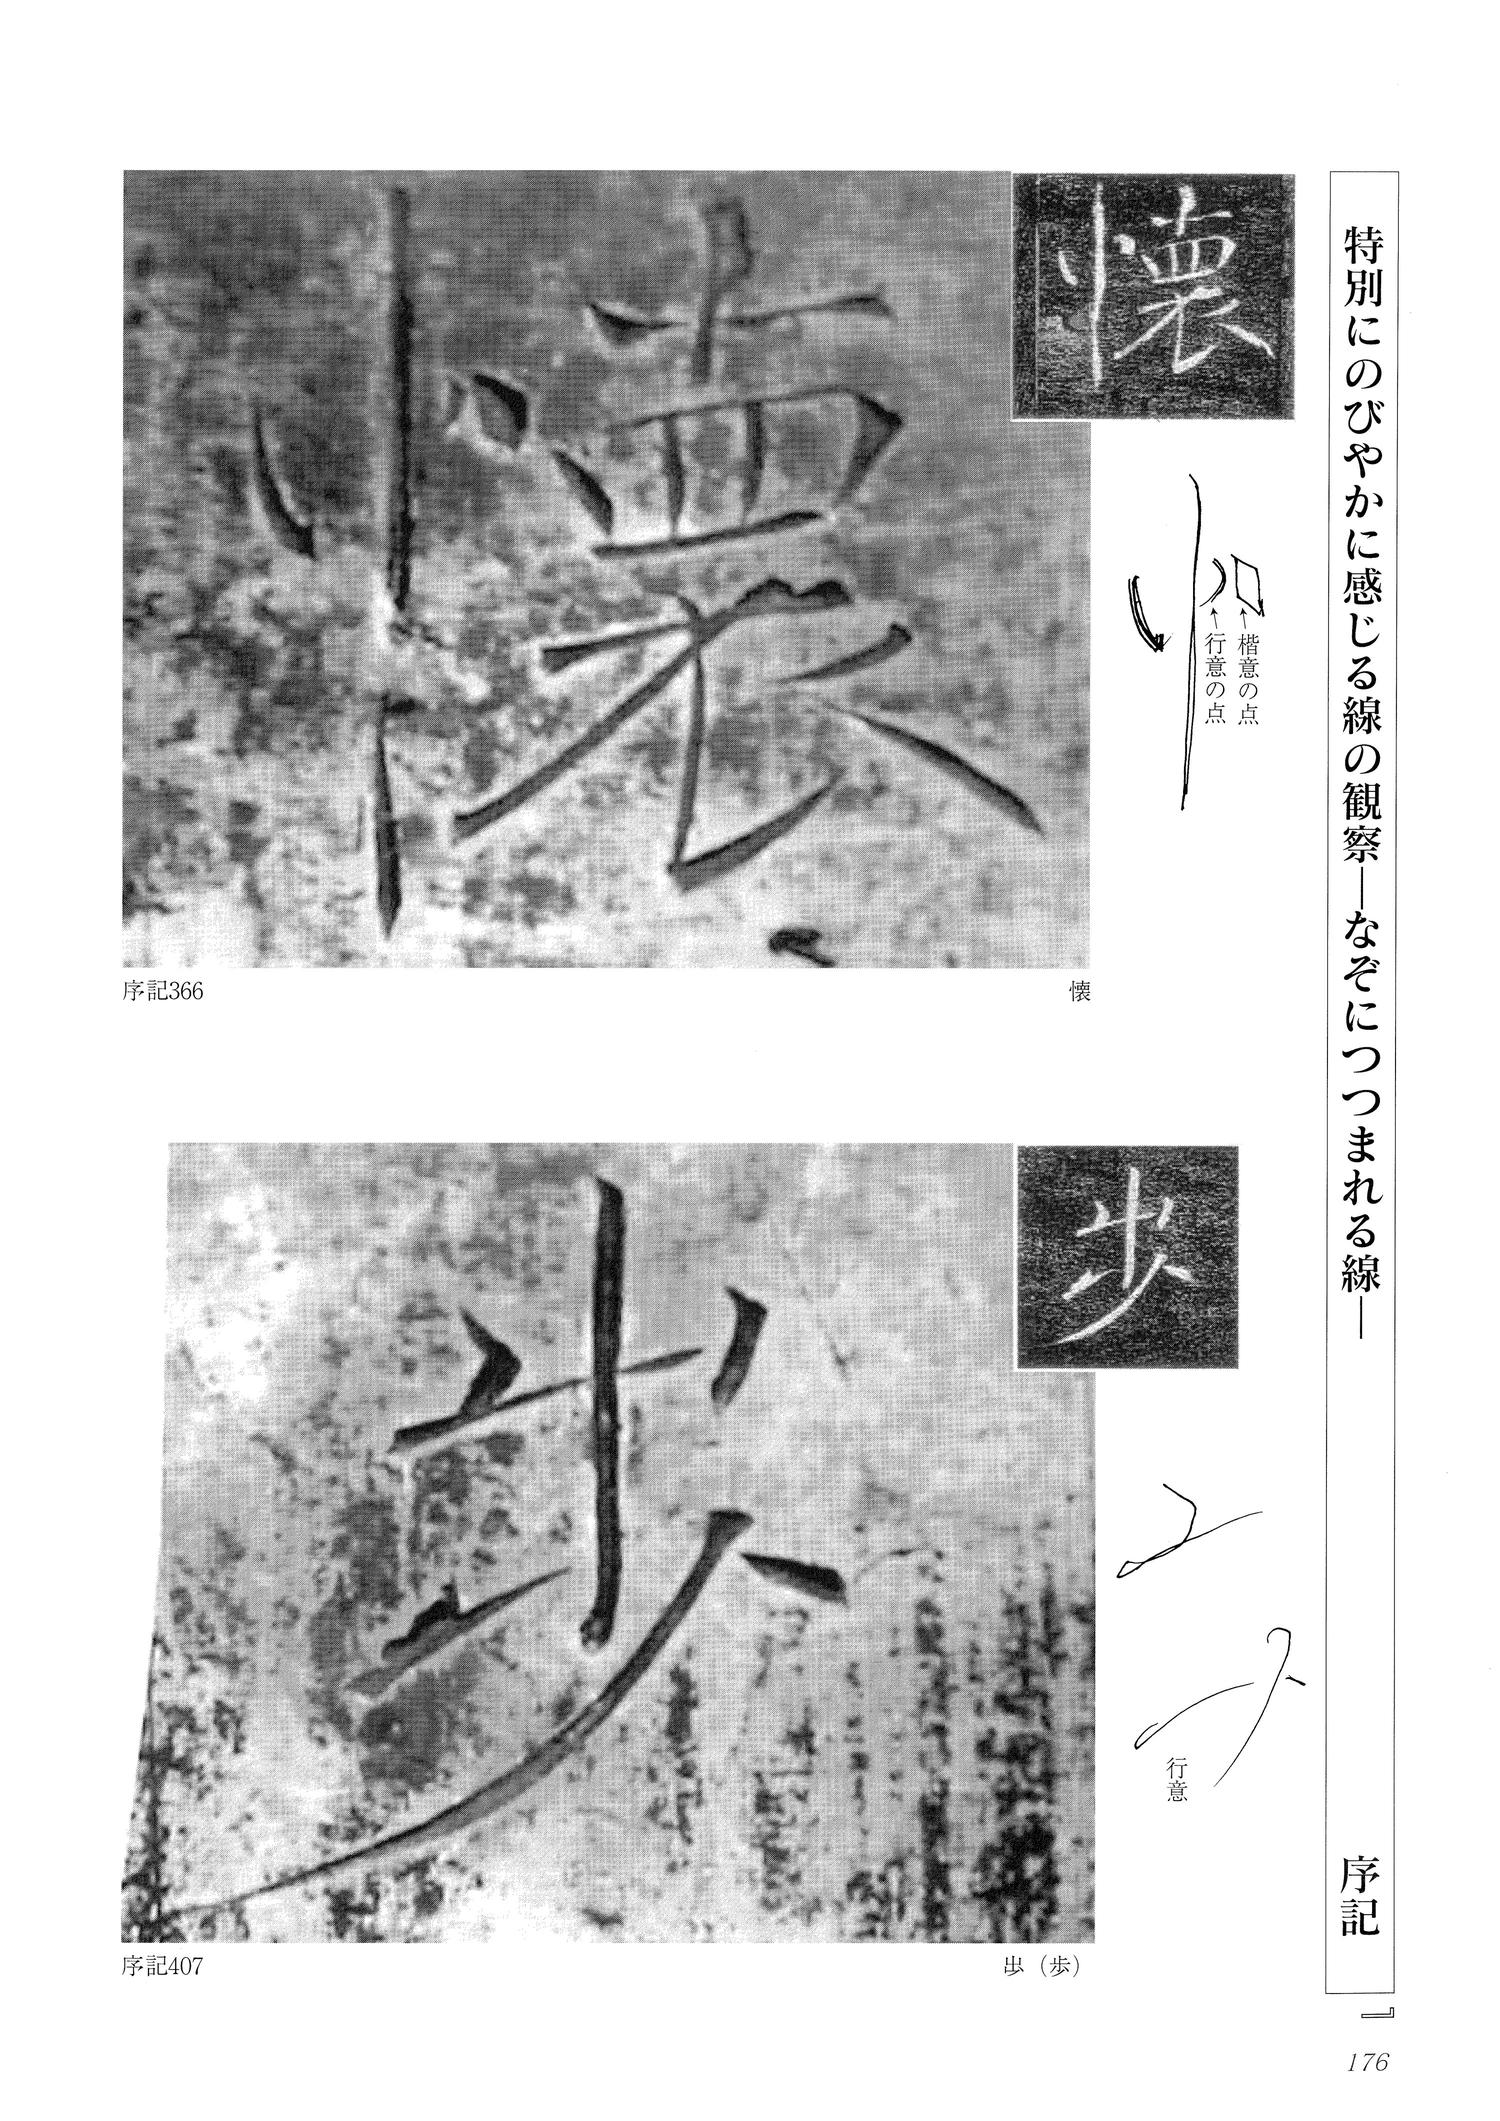 特別にのびやかに感じる線の観察―なぞにつつまれる線―　序記
懐
楷意の点
行意の点
序記366
懐
歩
行意
序記407
歨（歩）
176